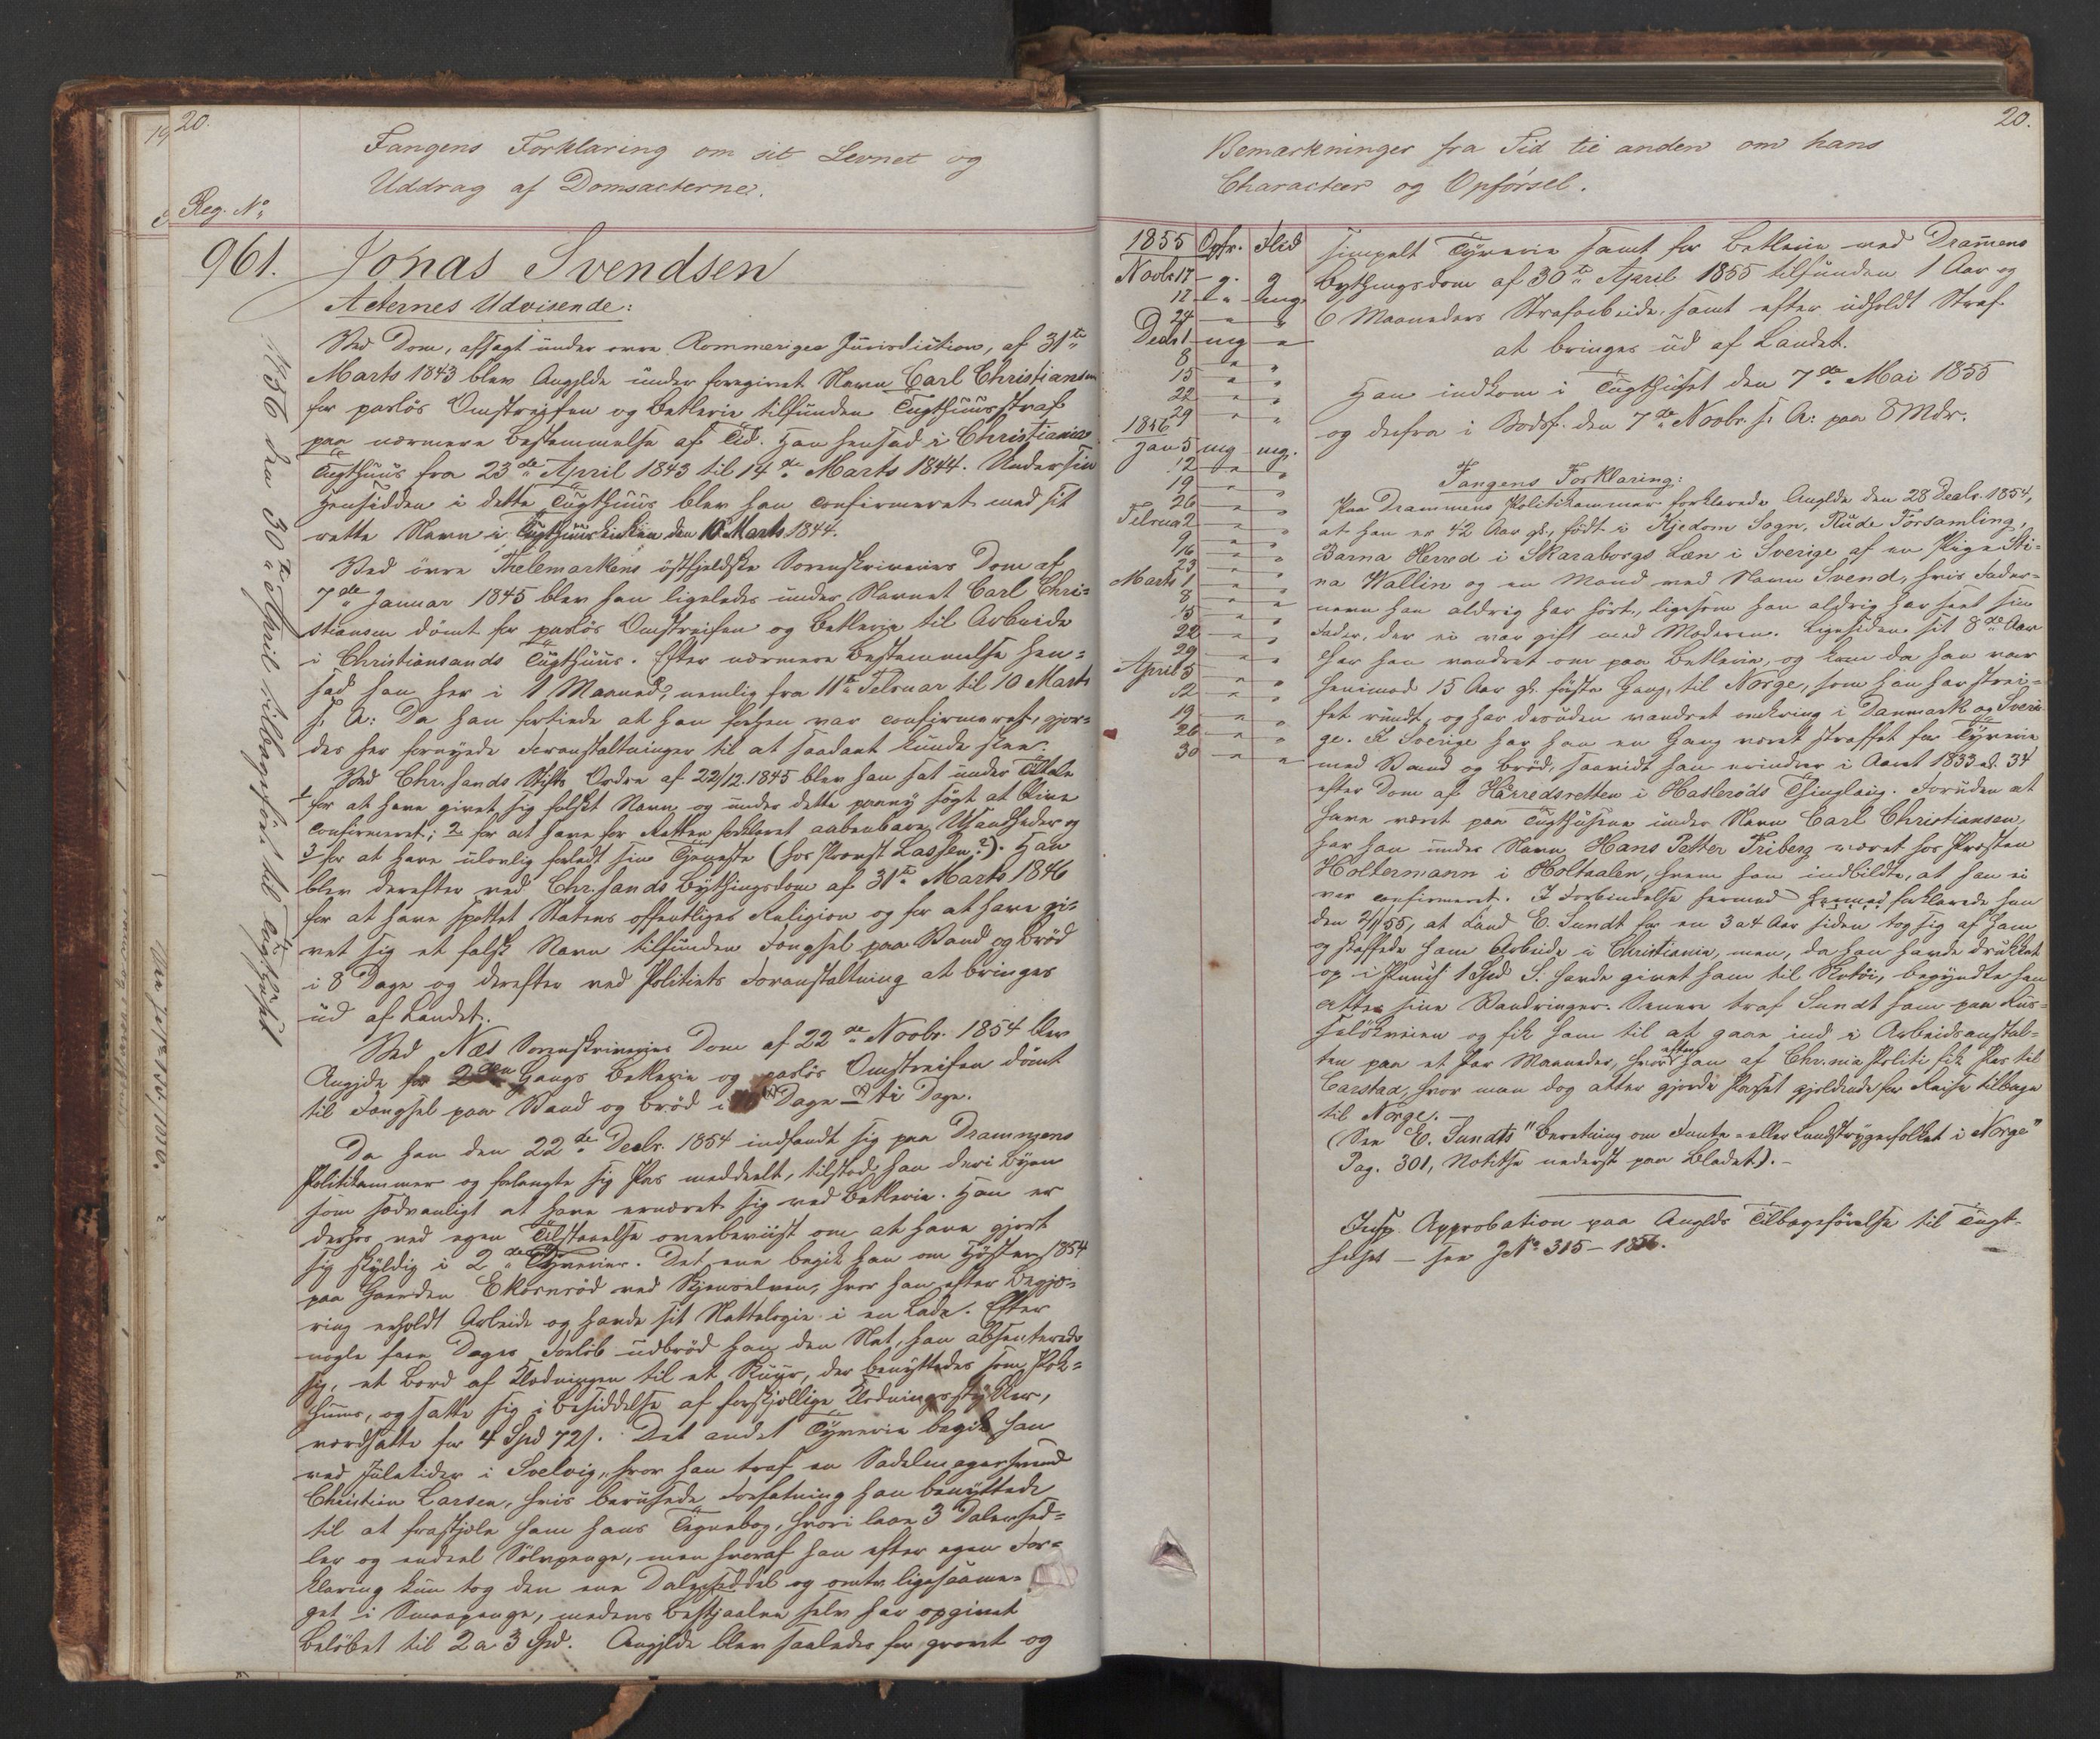 20.
Fangens Forklaring om sit Levnet og
Uddrag af Domsacterne.
Reg. No
961. Jonas Svendsen
Acternes Udvisende:
Ved Dom, afsagt under øvre Rommeriges Jurisdiction, af 31te
Marts 1843 blev Angjldе under foregivet Navn Carl Christiansen
for pasløs Omstreifen og Betlerie tilfunden Tugthuusstraf
paa nærmere Bestemmelse af Tid. Han hensad i Christiania
Tugthuus fra 23de April 1843 til 14de Marts 1844. Under sin
Hensidden i dette Tugthuus blev han confirmeret med sit
rette Navn i Tugthuuskirken den 10 Marts 1844.
Ved øvre Thelemarkens østfjeldske Sorenskriveries Dom af
7de Januar 1845 blev han ligeledes under Navnet Carl Chri-
stiansen dømt for pasløs Omstreifen og Betlerie til Arbeide
i Christiansands Tugthuus. Efter nærmere Bestemmelse hen-
sad han her i 1 Maaned, nemlig fra 11te Februar til 10 Marts
s. A: Da han fortiede at han forhen var confirmeret, gjor-
des her fornyede Foranstaltninger til at saadant kunde skee.
Ved Chr.sands Stifts Ordre af 22/12.1845 blev han sat under Tiltale
1 for at have givet sig falskt Navn og under dette paany søgt at blive
confirmeret; 2 for at have for Retten forklaret aabenbare Usandheder og
3 for at have ulovlig forladt sin Tjeneste (hos Provst Lassen?). Han
blev derefter ved Chr.sands Bythingsdom af 31te Marts 1846
for at have spottet Statens offentliges Religion og for at have gi-
vet sig et falsk Navn tilfunden Fængsel paa Vand og Brød
i 8 Dage og derefter ved Politiets Foranstaltning at bringes
ud af Landet.
Ved Næs Sorenskriveries Dom af 22de Novbr. 1854 blev
Angjde for 2den Gangs Betlerie og pasløs Omstreifen dømt
til Fængsel paa Vand og Brød i Dage ti Dage.
Da han den 22de Decbr. 1854 indfandt sig paa Drammens
Politikammer og forlangte sig Pas meddeelt, tilstod han deri Byen
som sædvanligt at have ernæret sig ved Betlerie. Han er
derhos ved egen Tilstaaelse overbeviist om at have gjort
sig skyldig i 2de Tyverier. Det ene begik han om Høsten 1854
paa Gaarden Ekornrød ved Skjenselven, hvor han efter Begjæ-
ring erholdt Arbeide og havde sit Nattelogie i en Lade. Efter
nogle faae Dages Forløb udbrød han den Nat, han absenterede
sig, et Bord af Klædningen til et Skuur, der benyttedes som Pak-
huus, og satte sig i Besiddelse af forskjellige Klædningsstykker,
værdsatte for 4 Spd 72 s. Det andet Tyverie begik han
ved Juletider i Svelvig, hvor han traf en Sadelmagersvend
Christian Larsen, hvis berusede Forfatning han benyttede
til at frastjæle ham hans Tegnebog, hvori laae 3 Dalersed-
ler og endeel Sølvpenge, men hvoraf han efter egen For-
klaring kun tog den ene Dalerseddel og omtr ligesaame-
get i Smaapenge, medens Bestjaalne selv har opgivet
Beløbet til 2 a 3 Spd. Angjldе blev saaledes for grovt og
56 den 30te April tilbageført til Tugthuset
20.
Bemærkninger fra Tid til anden om hans
Characteer og Opførsel.
1855 Opfr. Flid
Novbr 17 g. g
12 " mg
24 " "
Decbr 1 mg "
8 " "
15 " "
22 " "
29 " "
1856
Jan 5 mg mg.
12 " "
19 " "
26 " "
Februar 2 " "
9 " "
16 " "
23 " "
Marts 1 " "
8 " "
15 " "
22 " "
29 " "
April 5 " "
12 " "
19 " "
26 " "
30 " "
simpelt Tyverie samt for Betlerie ved Drammens
Bythingsdom af 30te April 1855 tilfunden 1 Aar og
6 Maaneders Strafarbeide, samt efter udholdt Straf
at bringes ud af Landet.
Han indkom i Tugthuset den 7de Mai 1855
og derfra i Bodsf. den 7de Novbr. s. A: paa 8 Mdr.
Fangens Forklaring:
Paa Drammens Politikammer forklarede Angjlde den 28 Decbr. 1854,
at han er 42 Aar gl., født i Kjedom Sogn, Rude Forsamling,
Barna Herred i Skaraborgs Læn i Sverige af en Pige Sti-
na Wallin og en Mand ved Navn Svend, hvis Fader-
navn han aldrig har hørt, ligesom han aldrig har seet sin
Fader, der ei var gift med Moderen. Ligesiden sit 8de Aar
har han vandret om paa Betlerie, og kom da han var
henimod 15 Aar gl. første Gang til Norge, som han har strei-
fet rundt, og har desuden vandret omkring i Danmark og Sveri-
ge. I Sverige har han en Gang været straffet for Tyverie
med Vand og Brød, saavidt han erindrer i Aaret 1833 el. 34
efter Dom af Härredsretten i Hasleröds Thinglaug. Foruden at
have været paa Tugthusene under Navn Carl Christiansen,
har han under Navn Hans Petter Friberg været hos Præsten
Holtermann i Holtaalen, hvem han indbildte, at han ei
var confirmeret. I Forbindelse hermed hermed forklarede han
den 2/1 55, at Cand E. Sundt for en 3 a 4 Aar siden tog sig af ham
og skaffede ham Arbeide i Christiania, men, da han havde drukket
op i Punsch 1 Spd S. havde givet ham til Fodtøi, begyndte han
atter sine Vandringer. Senere traf Sundt ham paa Rus-
seløkveien og fik ham til at gaae ind i Arbeidsanstal-
ten paa et Par Maaneder, hvorefter han af Chr.nia Politi fik Pas til
Carstad, hvor man dog atter gjorde Passet gjeldende for Reise tilbage
til Norge. –
(See E. Sundts "Beretning om Fante- eller Landstrygerfolket i Norge"
Pag. 301, Notitse nederst paa Bladet). –
Insp. Approbation paa Anglds Tilbageførelse til Tugt-
huset – see JNo 315 – 1856.